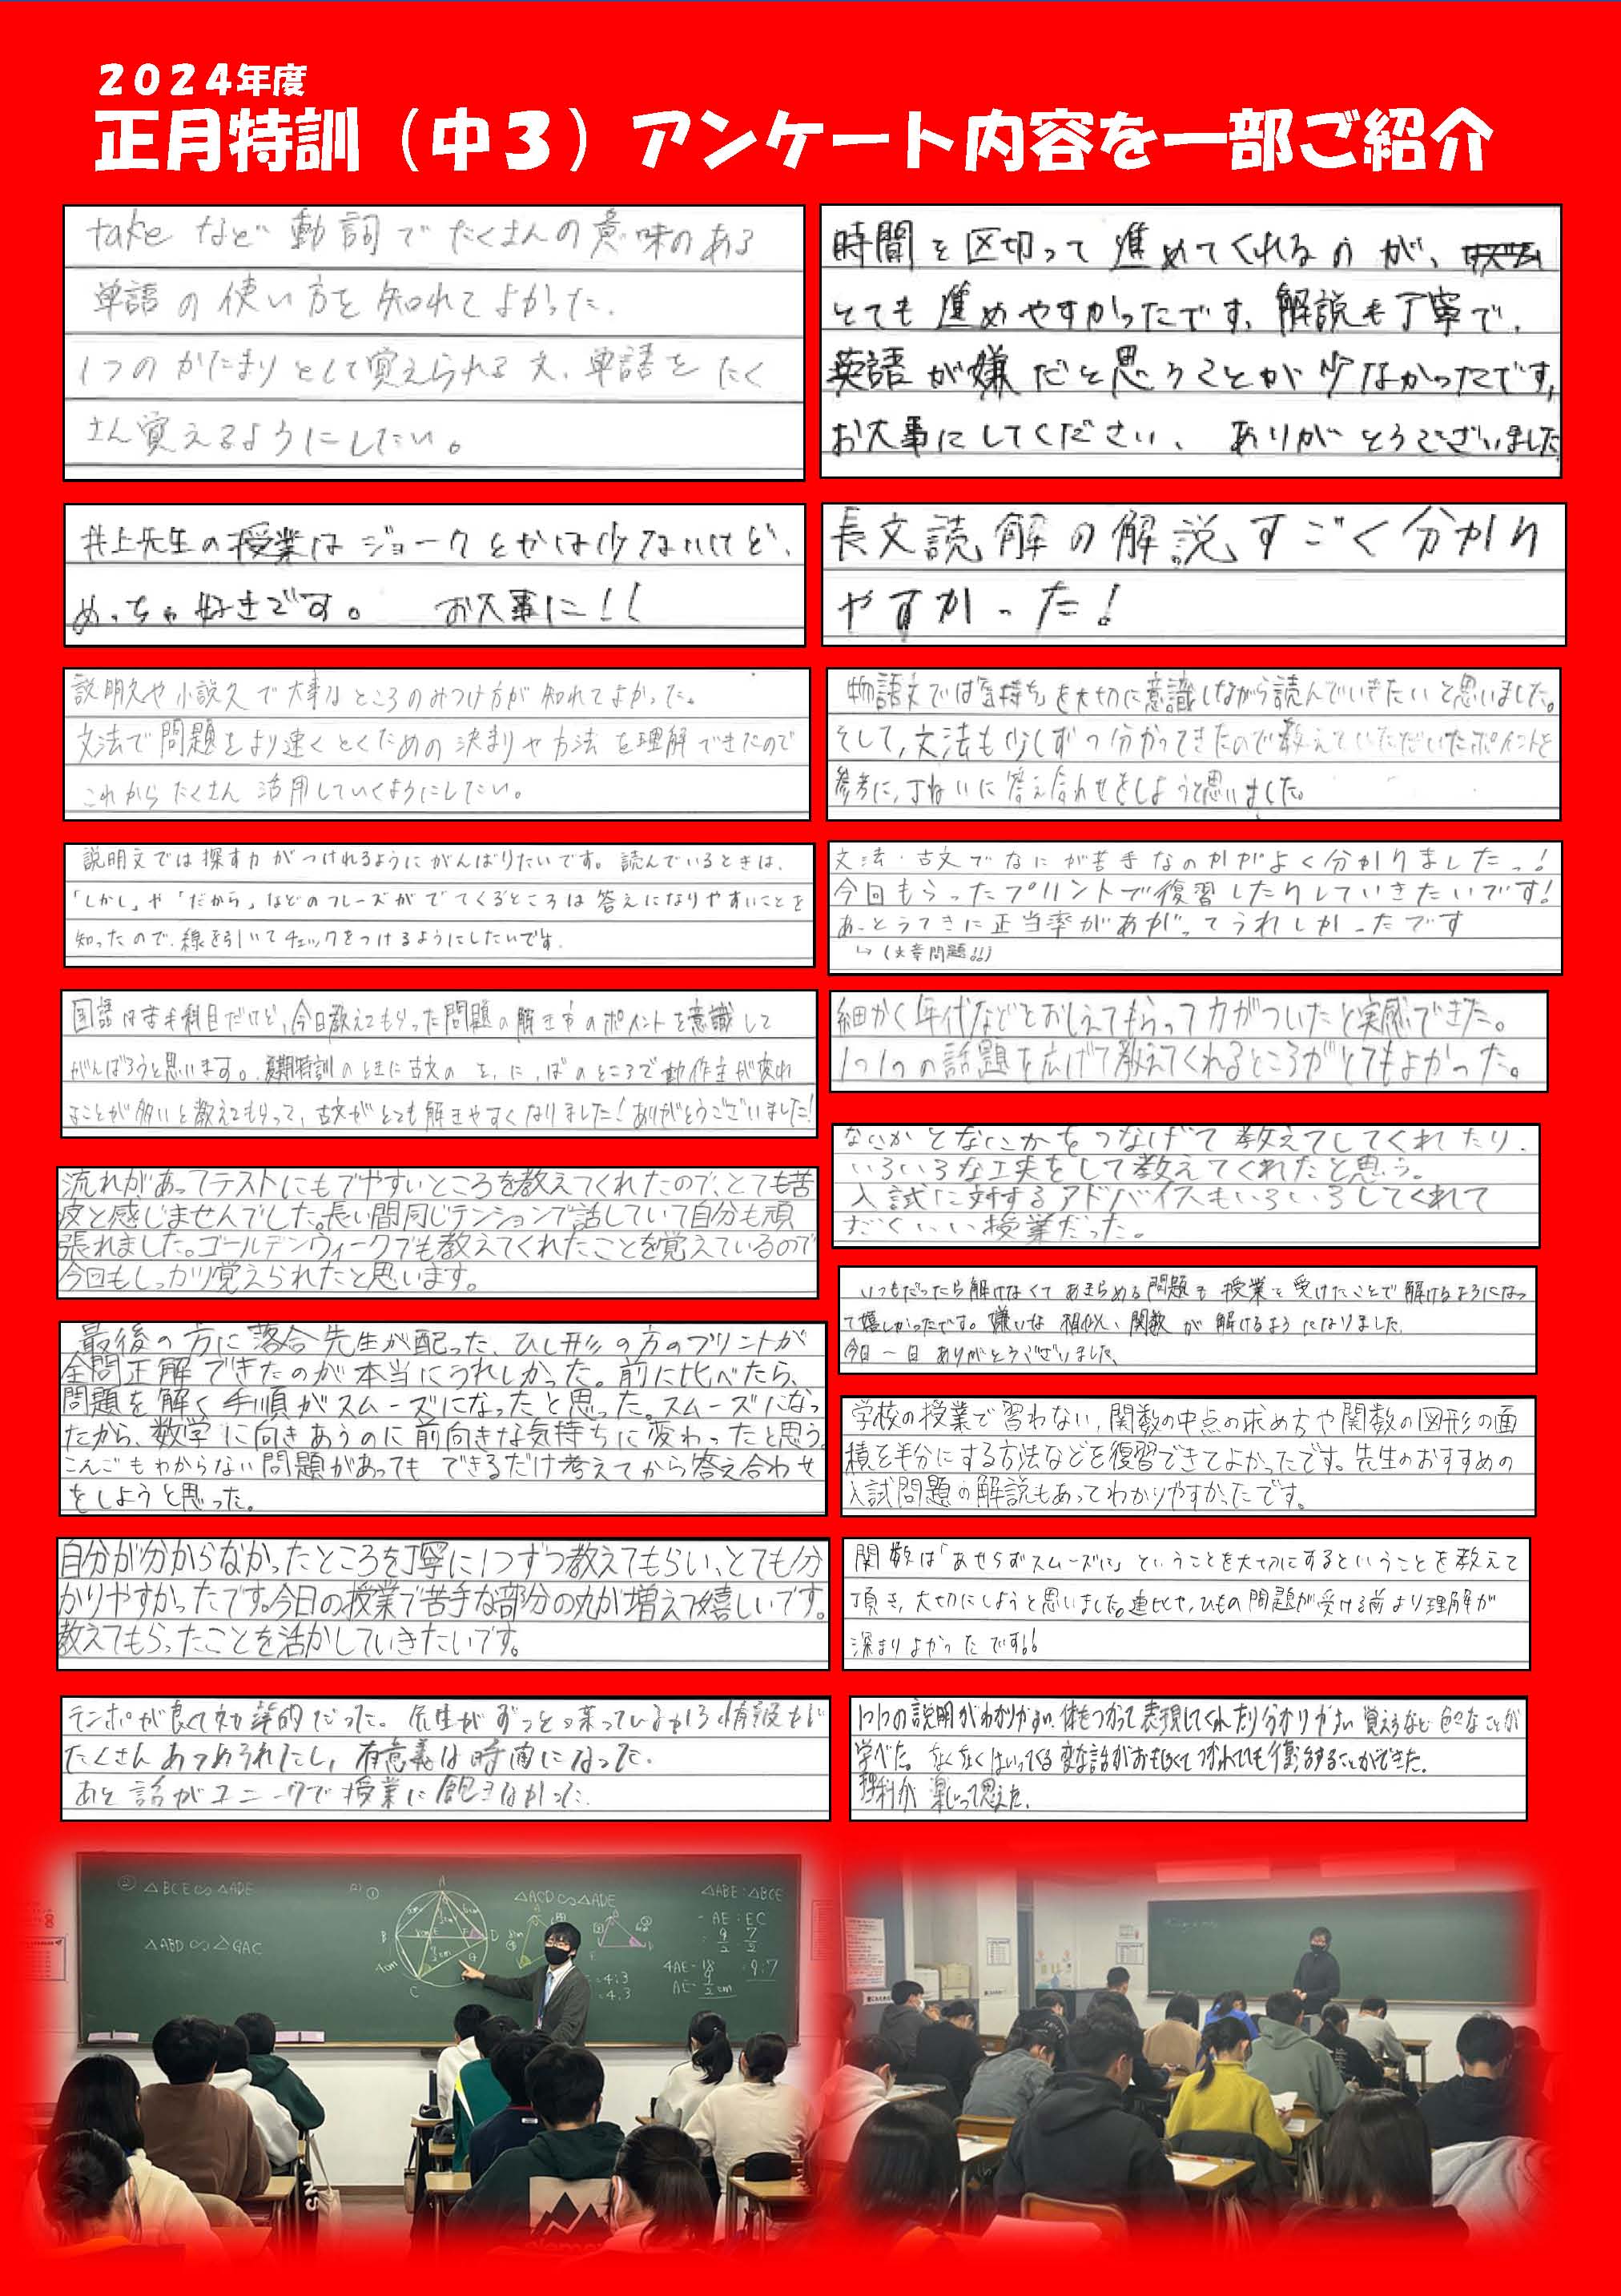 ２０２４年度
正月特訓（中３）アンケート内容を一部ご紹介
takeなど動詞でたくさんの意味のある
単語の使い方を知れてよかった.
1つのかたまりとして覚えられる文、単語をたく
さん覚えるようにしたい。
時間を区切って進めてくれるのが、
とても進めやすかったです。解説も丁寧で、
英語が嫌だと思うことが少なかったです。
お大事にしてください、ありがとうございました
井上先生の授業はジョークとかは少ないけど、
めっちゃ好きです。 お大事に!!
長文読解の解説すごく分かり
やすかった!
説明文や小説文で大事なところのみつけ方が知れてよかった。
文法で問題をより速くとくための決まりや方法を理解できたので
これからたくさん活用していくようにしたい。
物語文では気持ちを大切に意識しながら読んでいきたいと思いました。
そして,文法も少しずつ分かってきたので教えていただいたポイントを
参考に,丁ねいに答え合わせをしようと思いました。
説明文では探す力がつけれるようにがんばりたいです。読んでいるときは、
「しかし」や「だから」などのフレーズがでてくるところは答えになりやすいことを
知ったので、線を引いてチェックをつけるようにしたいです.
文法・古文でなにが苦手なのかがよく分かりましたっ!
今回もらったプリントで復習したりしていきたいです!
あっとうてきに正当率があがってうれしかったです
↳(文章問題!!)
国語は苦手科目だけど、今日教えてもらった問題の解き方のポイントを意識して
がんばろうと思います。夏期特訓のときに古文の を、に、ばのところで動作主が変わ
ることが多いと教えてもらって、古文がとても解きやすくなりました!ありがとうございました!
細かく年代などをおしえてもらって力がついたと実感できた。
1つ1つの話題を広げて教えてくれるところがとてもよかった。
流れがあってテストにもでやすいところを教えてくれたので、とても苦
痛と感じませんでした。長い間同じテンションで話していて自分も頑
張れました。ゴールデンウィークでも教えてくれたことを覚えているので
今回もしっかり覚えられたと思います。
なにかとなにかをつなげて教えてしてくれたり、
いろいろな工夫をして教えてくれたと思う。
入試に対するアドバイスもいろいろしてくれて
すごくいい授業だった。
いつもだったら解けなくてあきらめる問題も授業を受けたことで解けるようになっ
て嬉しかったです。嫌いな相似、関数が解けるようになりました.
今日一日ありがとうございました、
最後の方に落合先生が配った、ひし形の方のプリントが
全問正解できたのが本当にうれしかった。前に比べたら、
問題を解く手順がスムーズになったと思った。スムーズになっ
たから、数学に向きあうのに前向きな気持ちに変わったと思う。
こんごもわからない問題があってもできるだけ考えてから答え合わせ
をしようと思った。
学校の授業で習わない,関数の中点の求め方や関数の図形の面
積を半分にする方法などを復習できてよかったです。先生のおすすめの
入試問題の解説もあってわかりやすかったです。
自分が分からなかったところを丁寧に1つずつ教えてもらい、とても分
かりやすかったです。今日の授業で苦手な部分の丸が増えて嬉しいです。
教えてもらったことを活かしていきたいです。
関数は「あせらずスムーズに」ということを大切にするということを教えて
頂き,大切にしようと思いました。連比や、ひもの問題が受ける前より理解が
深まりよかったです!!
テンポが良くて効率的だった。先生がずっと喋っているから情報も
たくさんあつめられたし、有意義な時間になった.
あと話がユニークで授業に飽きなかった.
1つ1つの説明がわかりやすい.体をつかって表現してくれたり分かりやすい覚え方など色々なことが
学べた。なくなくはいってくる変な話がおもしろくてつかれても復活することができた。
理科が楽しいって思えた.
② △BCE∽△ADE
△ABD∽△GAC
△ACD∽△ADE
△ABE:△BCE
AE:EC
9:7
4AE=18